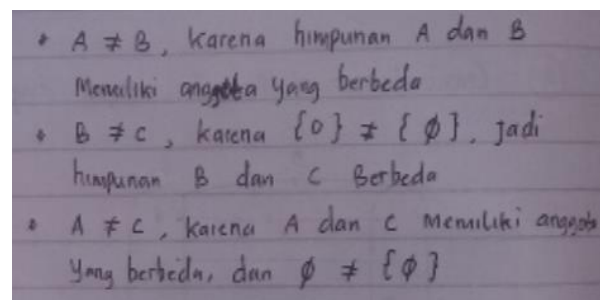 • A ≠ B, karena himpunan A dan B
Memiliki anggota yang berbeda
• B ≠ C, karena {0} ≠ {∅}. Jadi
himpunan B dan C Berbeda
• A ≠ C, karena A dan C Memiliki anggota
Yang berbeda, dan ∅ ≠ {∅}